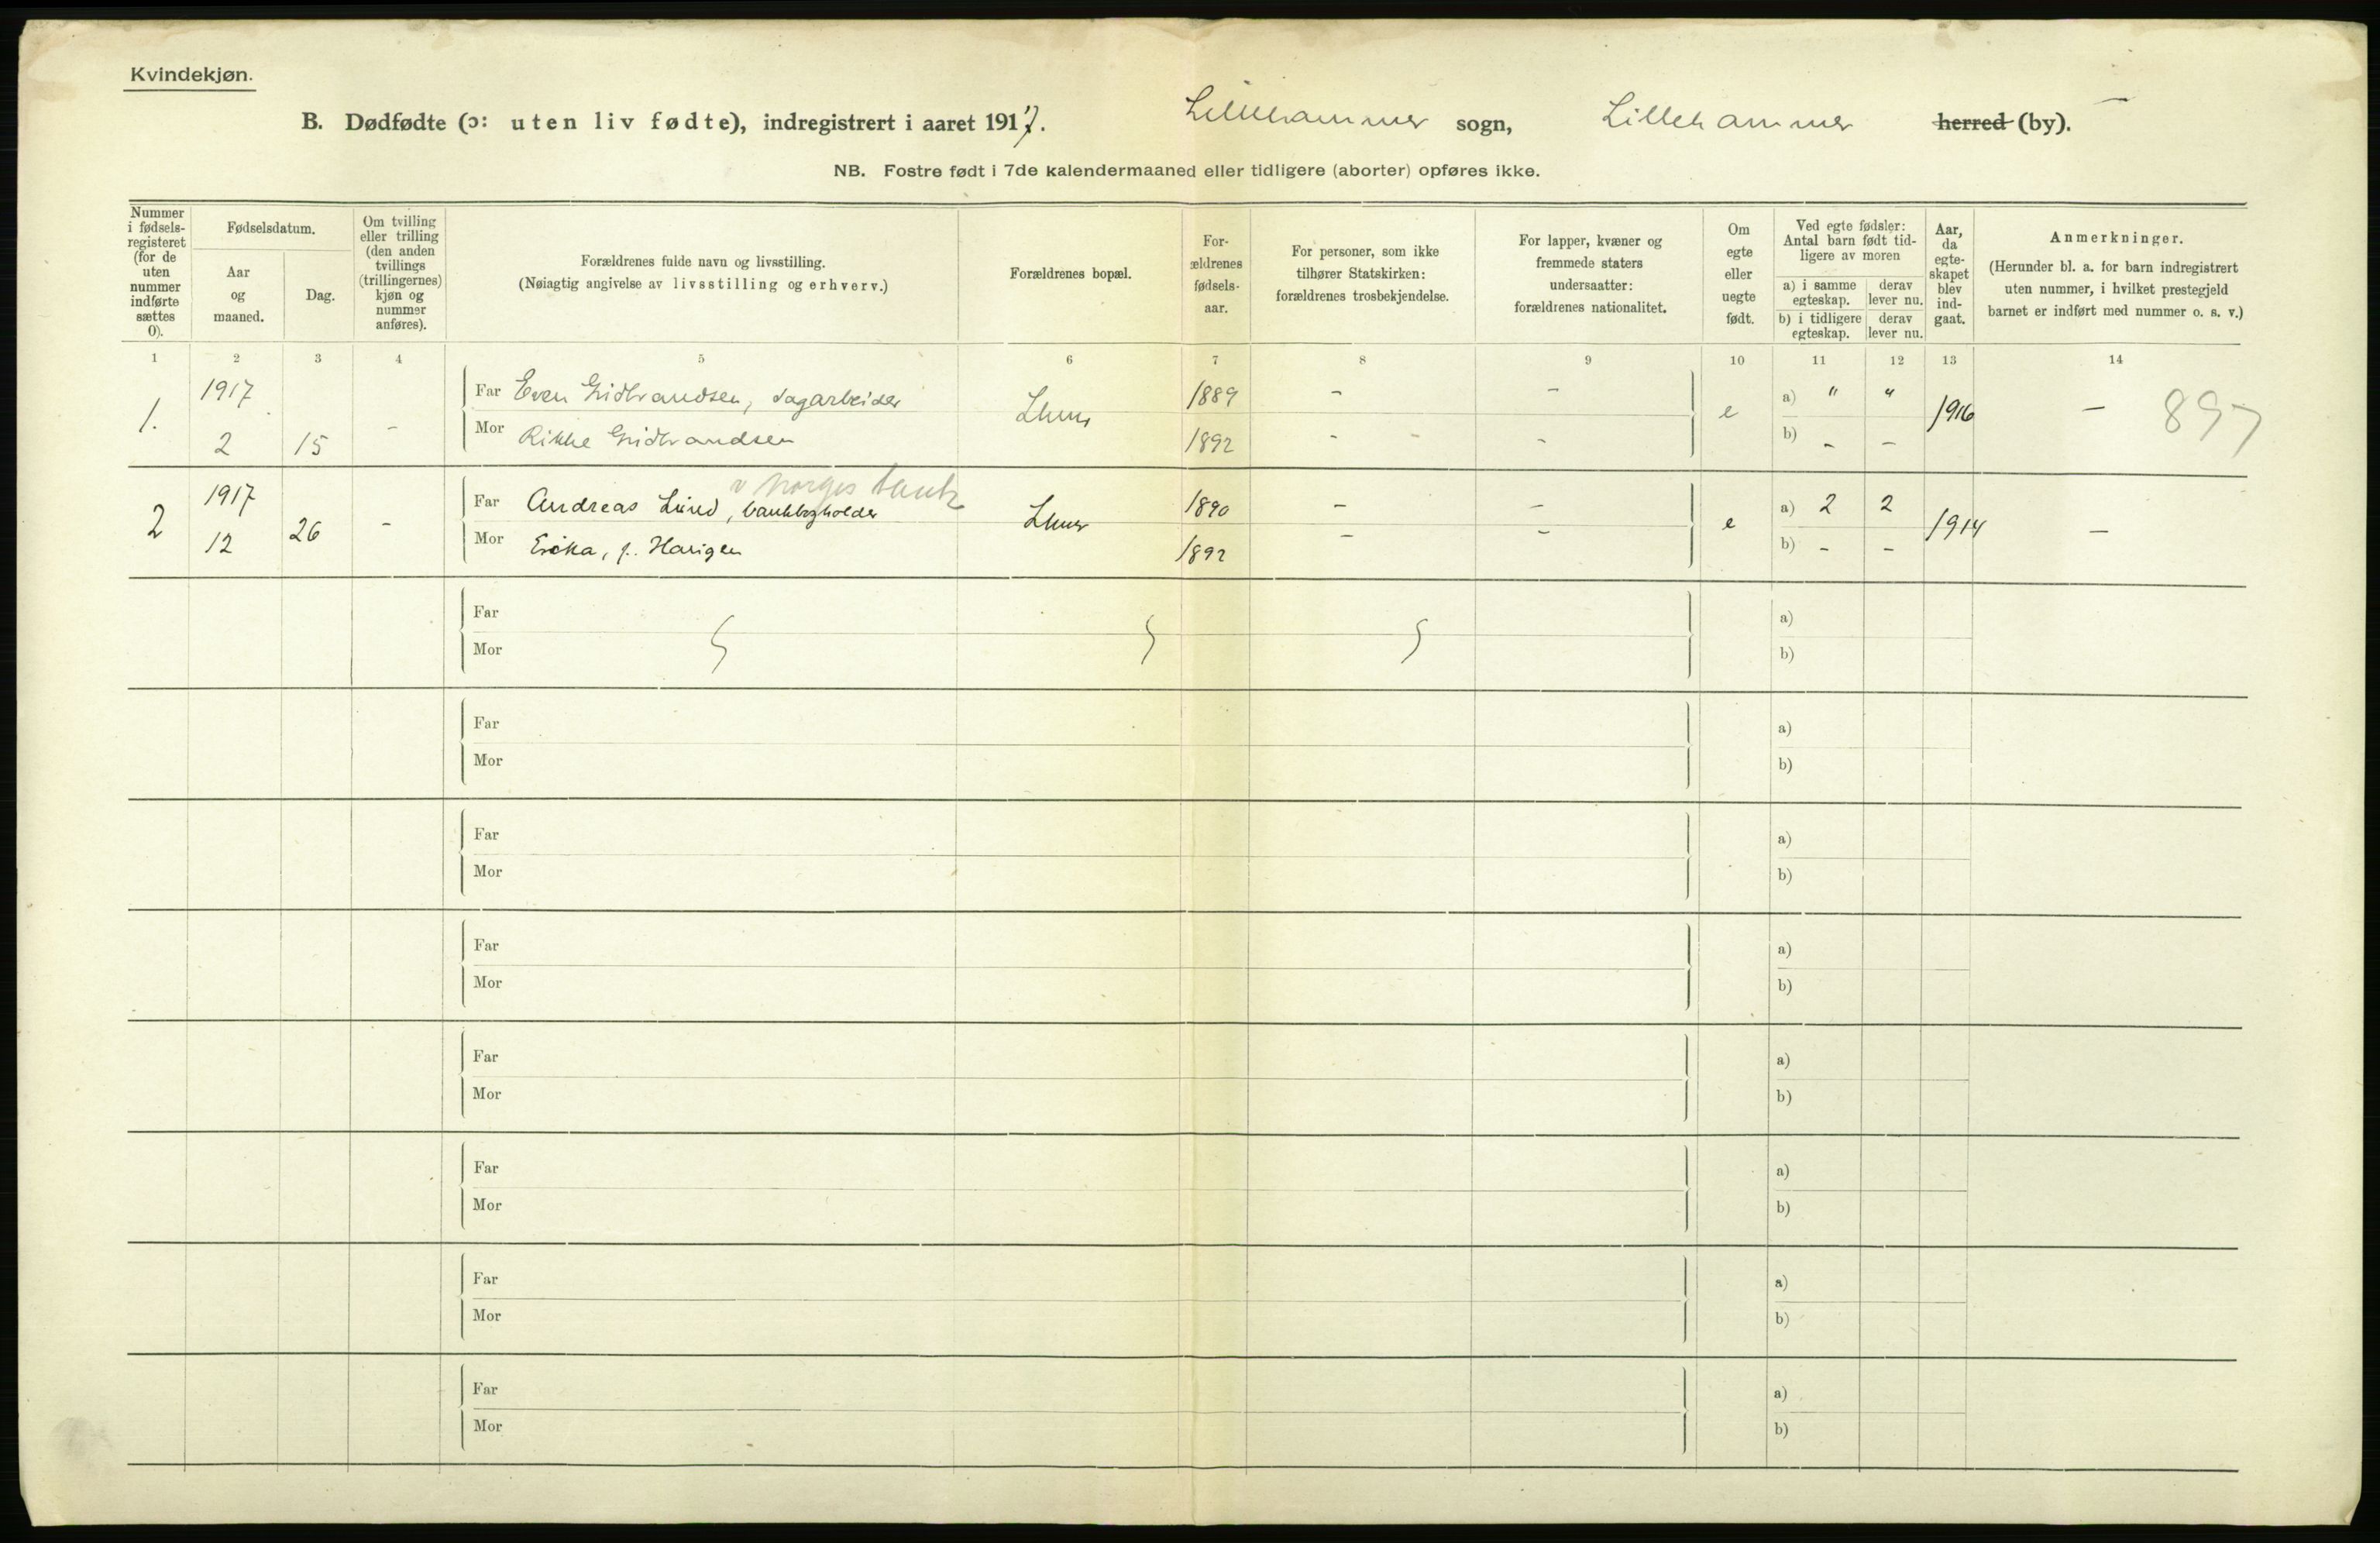 Kvindekjøn.
B. Dødfødte (ɔ: uten liv fødte), indregistrert i aaret 1917. Lillehammer sogn, Lillehammer herred (by).
NB. Fostre født i 7de kalendermaaned eller tidligere (aborter) opføres ikke.
Nummer
i fødsels-
registeret
(for de
uten
nummer
indførte
sættes
0).
Fødselsdatum.
Aar
og
maaned.
Dag.
Om tvilling
eller trilling
(den anden
tvillings
(trillingernes)
kjøn og
nummer
anføres).
Forældrenes fulde navn og livsstilling.
(Nøiagtig angivelse av livsstilling og erhverv.)
Forældrenes bopæl.
For-
ældrenes
fødsels-
aar.
For personer, som ikke
tilhører Statskirken:
forældrenes trosbekjendelse.
For lapper, kvæner og
fremmede staters
undersaatter:
forældrenes nationalitet.
Om
egte
eller
uegte
født.
Ved egte fødsler:
Antal barn født tid-
ligere av moren
a) i samme
egteskap.
derav
lever nu.
b) i tidligere
egteskap.
derav
lever nu.
Aar,
da
egte-
skapet
blev
ind-
gaat.
Anmerkninger.
(Herunder bl. a. for barn indregistrert
uten nummer, i hvilket prestegjeld
barnet er indført med nummer o. s. v.)
1 2 3 4 5 6 7 8 9 10 11 12 13 14
1. 1917 2 15 -
Far Even Gudbrandsen, sagarbeider
Mor Rikke Gudbrandsen
Lhmr 1889 - -
1892 - - -
e a) " " 1916 - 897
b) - -
v Norges bank
2 1917 12 26 -
Far Andreas Lund, bankbogholder
Mor Erika, f. Harigen
Lhmr 1890 - -
1892 - -
e a) 2 2 1914 -
b) - -
Far a)
Mor b)
Far a)
Mor b)
Far a)
Mor b)
Far a)
Mor b)
Far a)
Mor b)
Far a)
Mor b)
Far a)
Mor b)
Far a)
Mor b)